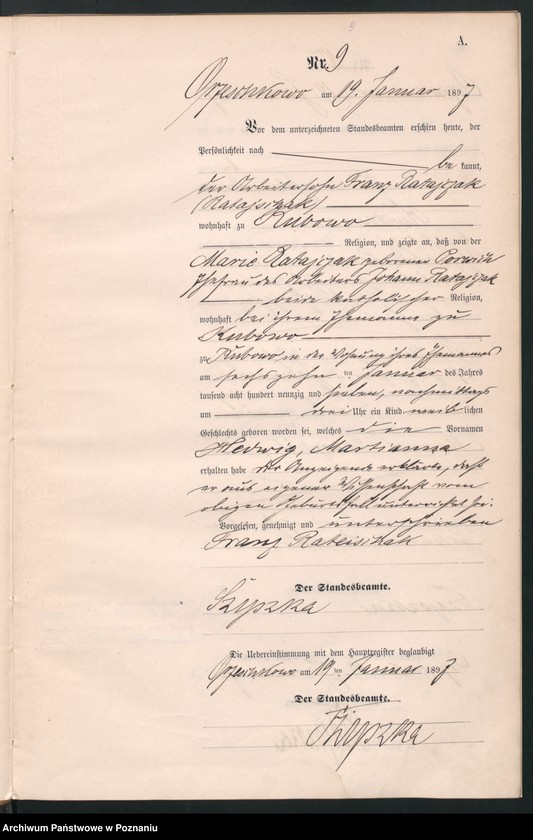 A.
Nr. 9
Orzeschkowo am 19. Januar 1897
Vor dem unterzeichneten Standesbeamten erschien heute, der
Persönlichkeit nach be kannt,
der Arbeitersohn Franz Ratajczak
(Ratajszak)
wohnhaft zu Kubowo
Religion, und zeigte an, daß von der
Marie Ratajczak geborenen Porwik
Ehefrau des Arbeiters Johann Ratajczak
beide katholischer Religion,
wohnhaft bei ihrem Ehemanne zu
Kubowo
zu Kubowo in der Wohnung ihres Ehemannes
am sechszehn ten Januar des Jahres
tausend acht hundert neunzig und sieben, nachmittags
um drei Uhr ein Kind weib lichen
Geschlechts geboren worden sei, welches die Vornamen
Hedwig, Martianna
erhalten habe der Anzeigende erklärte, daß
er aus eigener Wissenschaft vom
obigen Geburtsfall unterrichtet sei.
Vorgelesen, genehmigt und unterschrieben
Franz Rateischak
Der Standesbeamte.
Szyszka
Die Uebereinstimmung mit dem Hauptregister beglaubigt
Orzeschkowo am 19 ten Januar 1897
Der Standesbeamte.
Szyszka
Archiwum Państwowe w Poznaniu